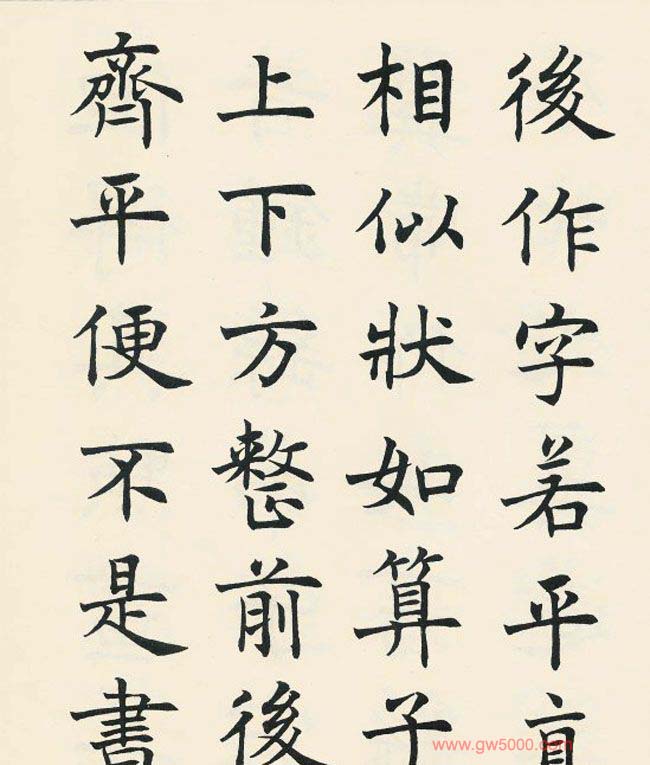 後作字若平直
相似狀如算子
上下方整前後
齊平便不是書
www.gw5000.com